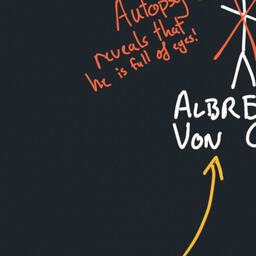 Autopsy
reveals that
he is full of eyes!
ALBRE
VON